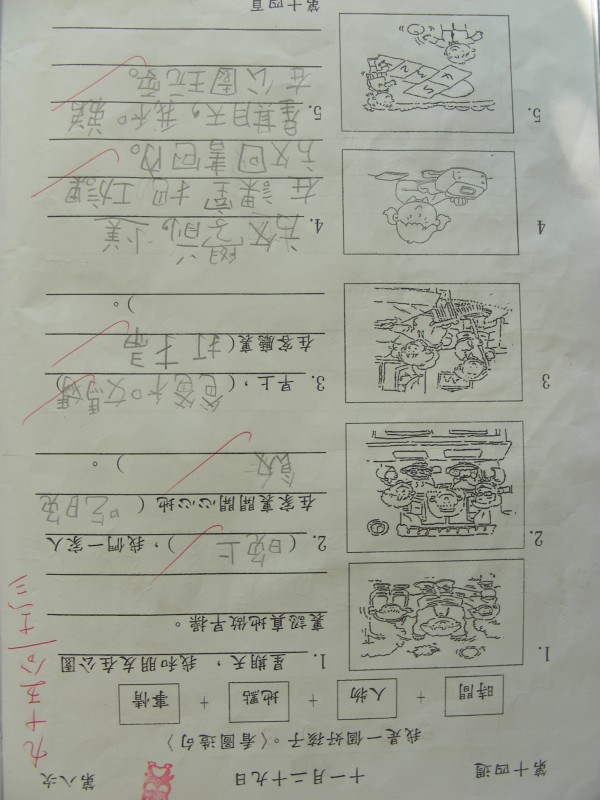 第十四週 十一月二十九日 第八次
我是一個好孩子。〈看圖造句〉
時間 + 人物 + 地點 + 事情
1. 星期天，我和朋友在公園
裏認真地做早操。
2. （晚上），我們一家人
在家裏開開心心地（吃晚
飯）。
3. 早上，（爸爸和媽媽）
在客廳裏（打掃
）。
4. 小美
在課室把功課
放回書包內。
5. 星期天，我和
在公園玩耍。
第十四頁
九十五分